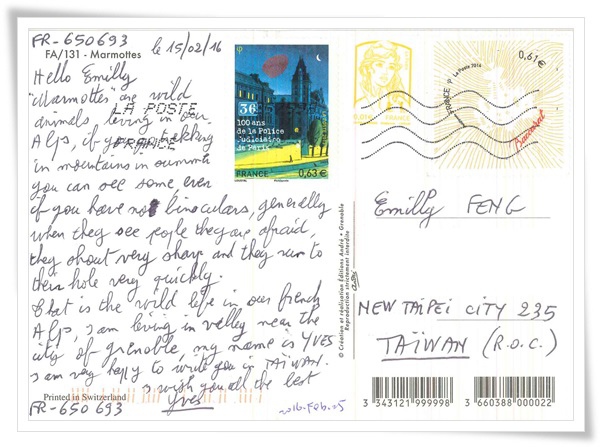 FR-650693
FA/131 - Marmottes
le 15/02/16
Hello Emilly
"Marmottes" are wild
animals living in our
Alps, if you trekking
in mountains in summer
you can see some even
if you have no binoculars, generally
when they see people they are afraid,
they shout very sharp and they run to
their hole very quickly.
that is the wild life in our french
Alps, I am living in valley near the
city of grenoble, my name is YVES
I am very happy to write you in TAÏWAN.
I wish you all the best
Yves
Printed in Switzerland
FR-650 693
LA POSTE
FRANCE
36
100 ans
de la Police
Judiciaire
de Paris
FRANCE
0,63 €
La Poste 2014
FRANCE
0,61€
Baccarat
© Création et réalisation Éditions André • Grenoble
Reproduction strictement interdite
Emilly FENG
NEW TAIPEI CITY 235
TAÏWAN (R.O.C.)
3 343121 999998
3 660388 000022
2016.Feb.25